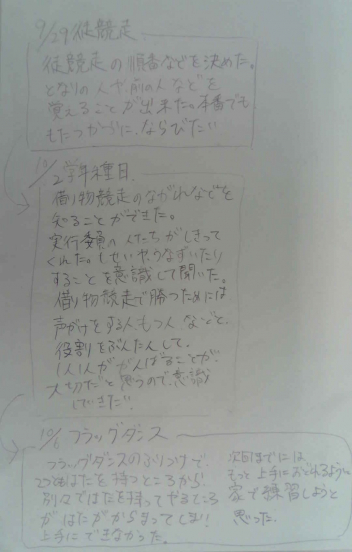 9/29 徒競走
徒競走の順番などを決めた。
となりの人や前の人などを
覚えることが出来た。本番でも
ならびたい
10/2 学年種目
借り物競走のながれなどを
知ることができた。
実行委員の人たちがしきって
くれた。しせいやうなずいたり
することを意識して聞いた。
借り物競走で勝つためには
声がけをする人もつ人などと、
役割をぶんたんして、
1人1人ががんばることが
大切だと思うので、意識
していきたい
10/ フラッグダンス
フラッグダンスのふりつけで、
2つはたを持つところから、
別々ではたを持ってやるところ
がはたがからまってしまい
上手にできなかった。
次回までには
もっと上手におどれるように
家で練習しようと
思った。